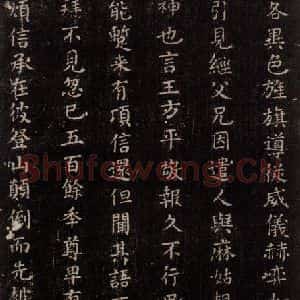 各異色旌旗導從威儀赫弈
引見經父兄因遣人與麻姑
神也言王方平敬報久不行
能暫來有頃信還但聞其語
拜不見忽已五百餘年尊卑有
煩信承在彼登山顛倒而先
Shufawang.CN